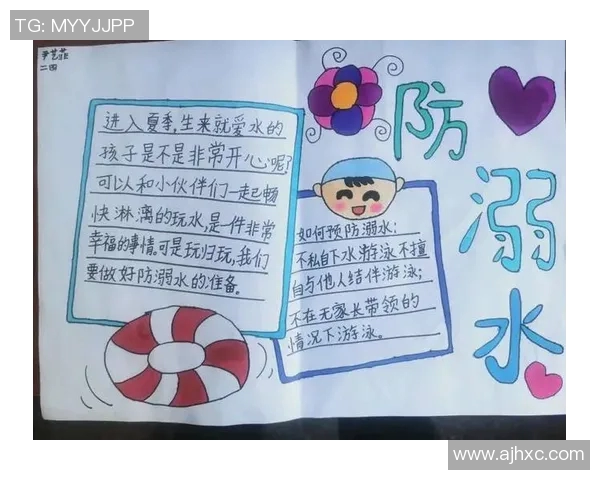 TG: MYYJJPP
尹艺菲
二四
进入夏季,生来就爱水的
孩子是不是非常开心呢?
可以和小伙伴们一起畅
快淋漓的玩水,是一件非常
幸福的事情。可是玩归玩,我们
要做好防溺水的准备。
如何预防溺水:
不私自下水游泳不擅
自与他人结伴游泳;
不在无家长带领的
情况下游泳。
防
溺
水
www.ajhxc.com